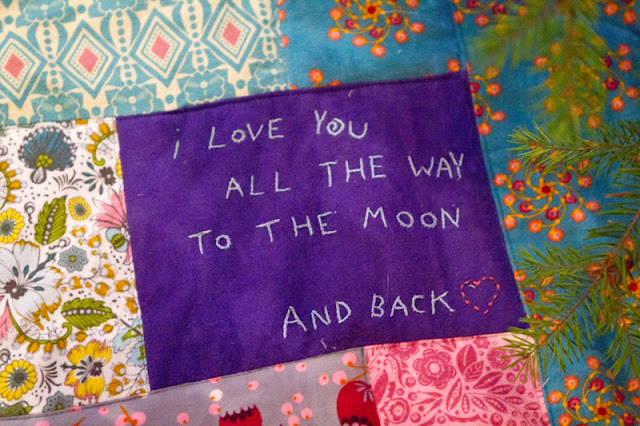 i LOVE YOU
ALL THE WAY
TO THE MOON
AND BACK